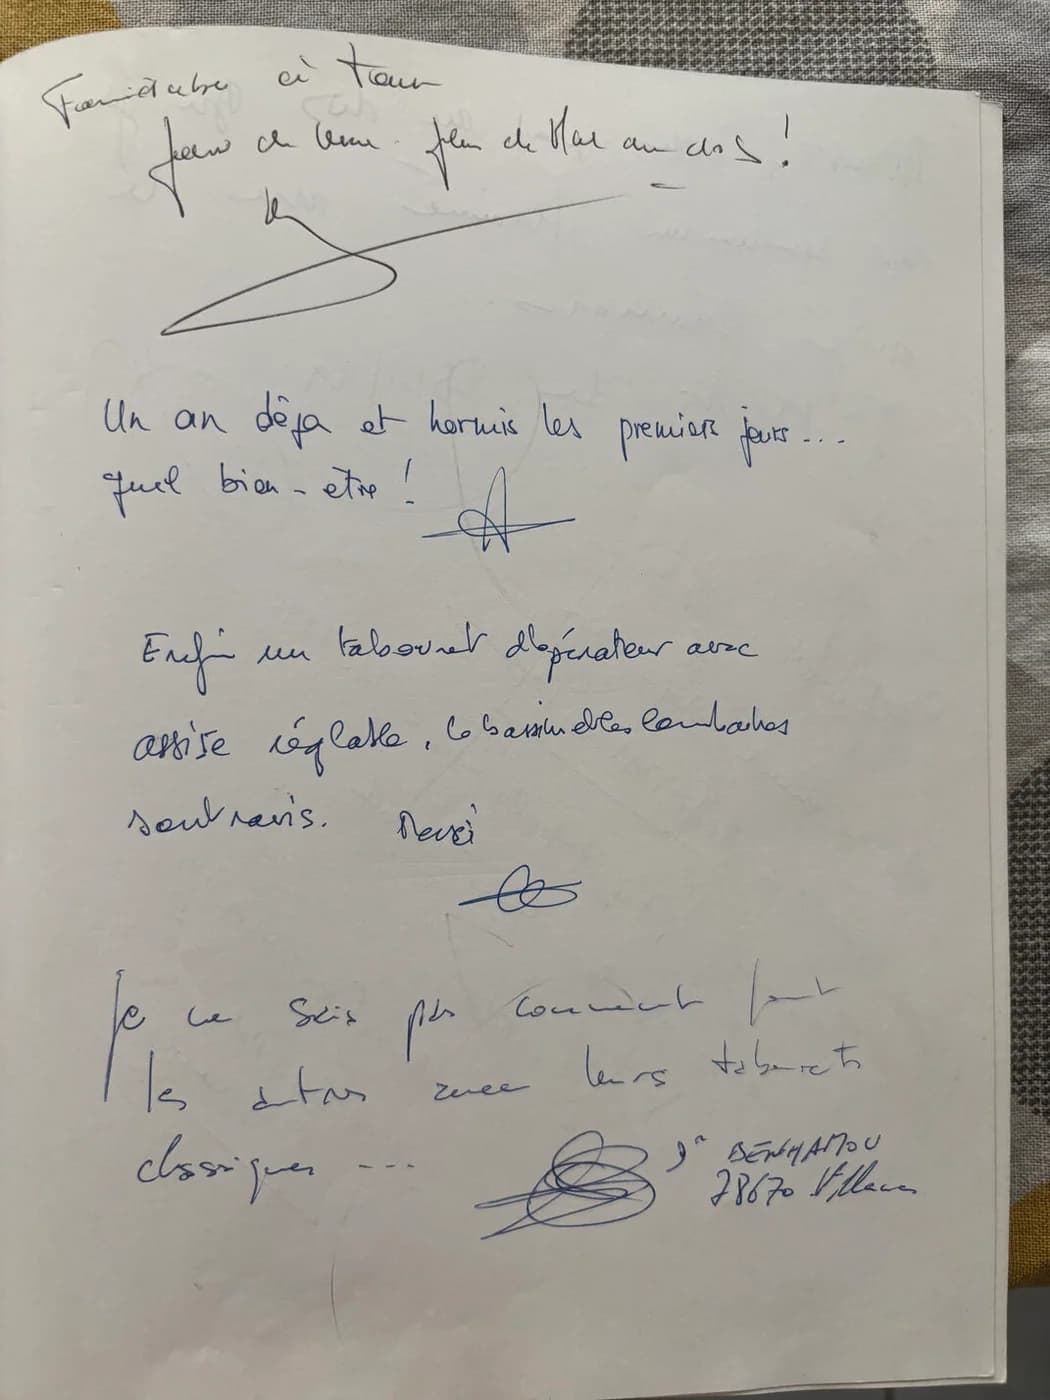 Formidable
plus de Mal au dos !
Un an déja et hormis les premiers jours...
quel bien-etre !
Enfin un tabouret d'opérateur avec
assise réglable, le bassin et les lombaires
sont ravis. Merci
Je ne sais pas comment font
les autres avec leurs tabourets
classiques ...
Dr BENHAMOU
78670 Villennes